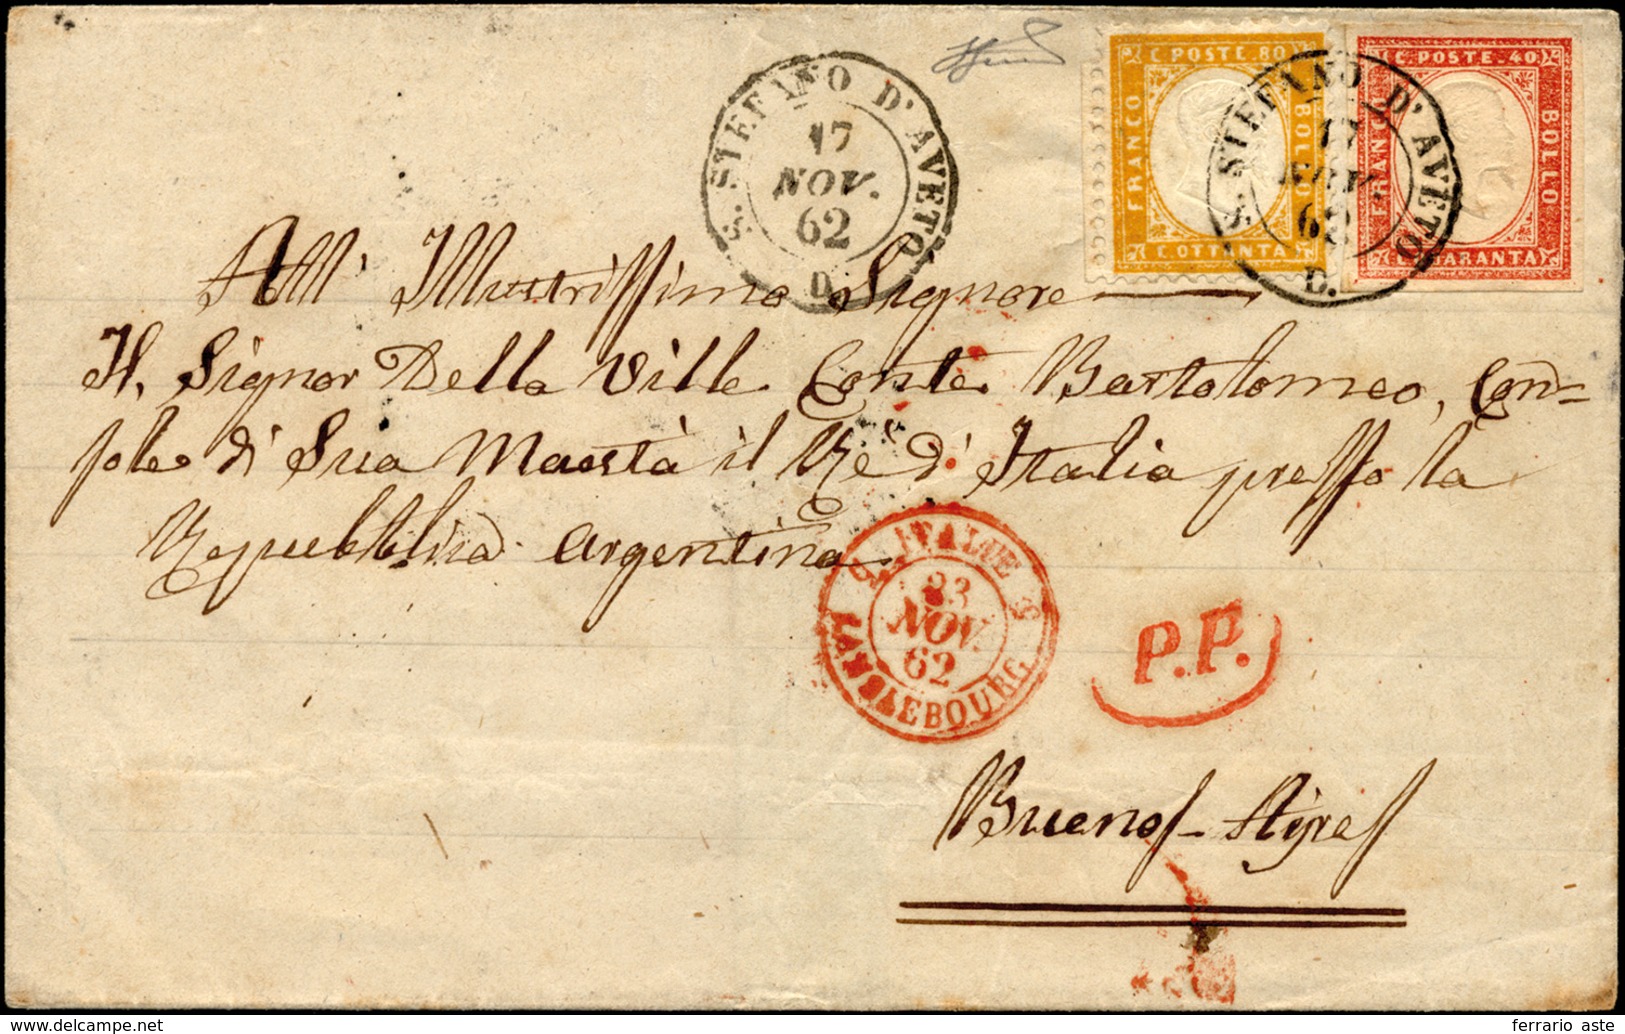 C. POSTE. 80
FRANCO
BOLLO
C. OTTANTA
C. POSTE. 40
BOLLO
S. STEFANO D'AVETO
17
NOV.
62
D.
S. STEFANO D'AVETO
17
NOV.
62
D.
All' Illustrissimo Signore
Il Signor Della Ville Conte Bartolomeo, Con-
sole di Sua Maestà il Re d'Italia presso la
Repubblica Argentina
ITALIE
23
NOV.
62
LANSLEBOURG
P.P.
Buenos-Aires
delcampe.net
ferrario aste